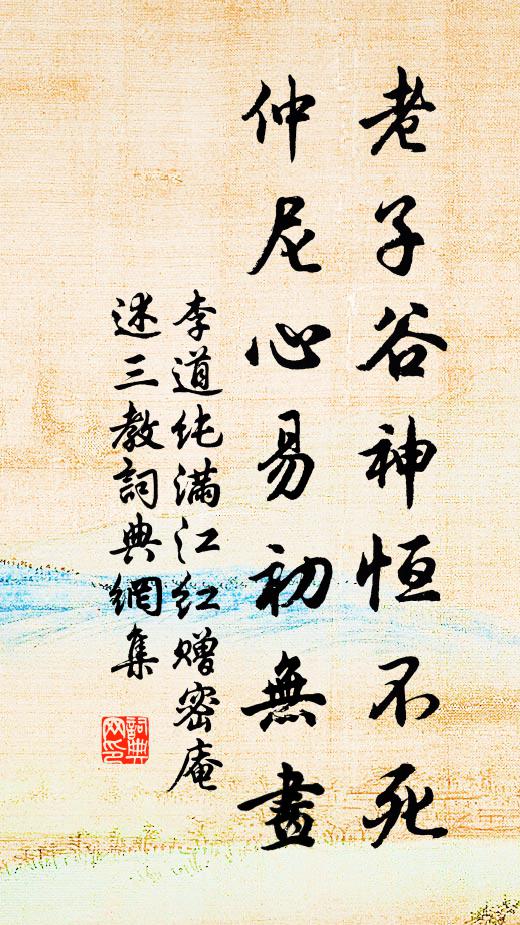 老子谷神恒不死
仲尼心易初無畫
李道纯满江红赠密庵
述三教詞典網集
詞典
网印